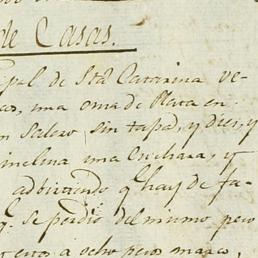 de Casas.
pal de Sta Catarina ve-
una oma de Plata en
n Salero sin tapad, y diez, y
inclina una Cuchara, y
adbirtiendo q hay de fa-
q. se perdio del mumo pero
a ocho pesos marco,